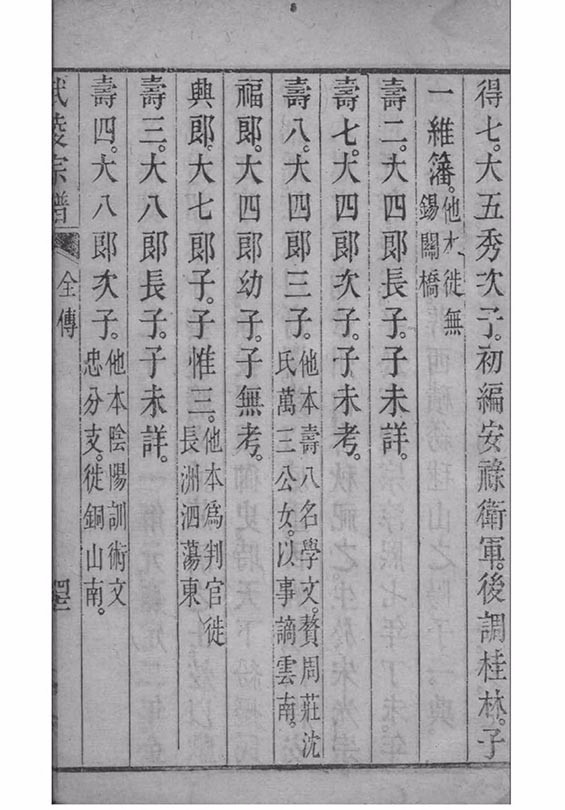 得七。大五秀次子。初編安祿衛軍。後調桂林。子
一維籓。他本徙無
錫關橋
壽二。大四郎長子。子未詳。
壽七。大四郎次子。子未考。
壽八。大四郎三子。他本壽八名學文。贅周莊沈
氏萬三公女。以事謫雲南。
福郎。大四郎幼子。子無考。
興郎。大七郎子。子惟三。他本為判官徙
長洲泗蕩東
壽三。大八郎長子。子未詳。
壽四。大八郎次子。他本陰陽訓術文
忠分支。徙銅山南。
武陵宗譜
全傳